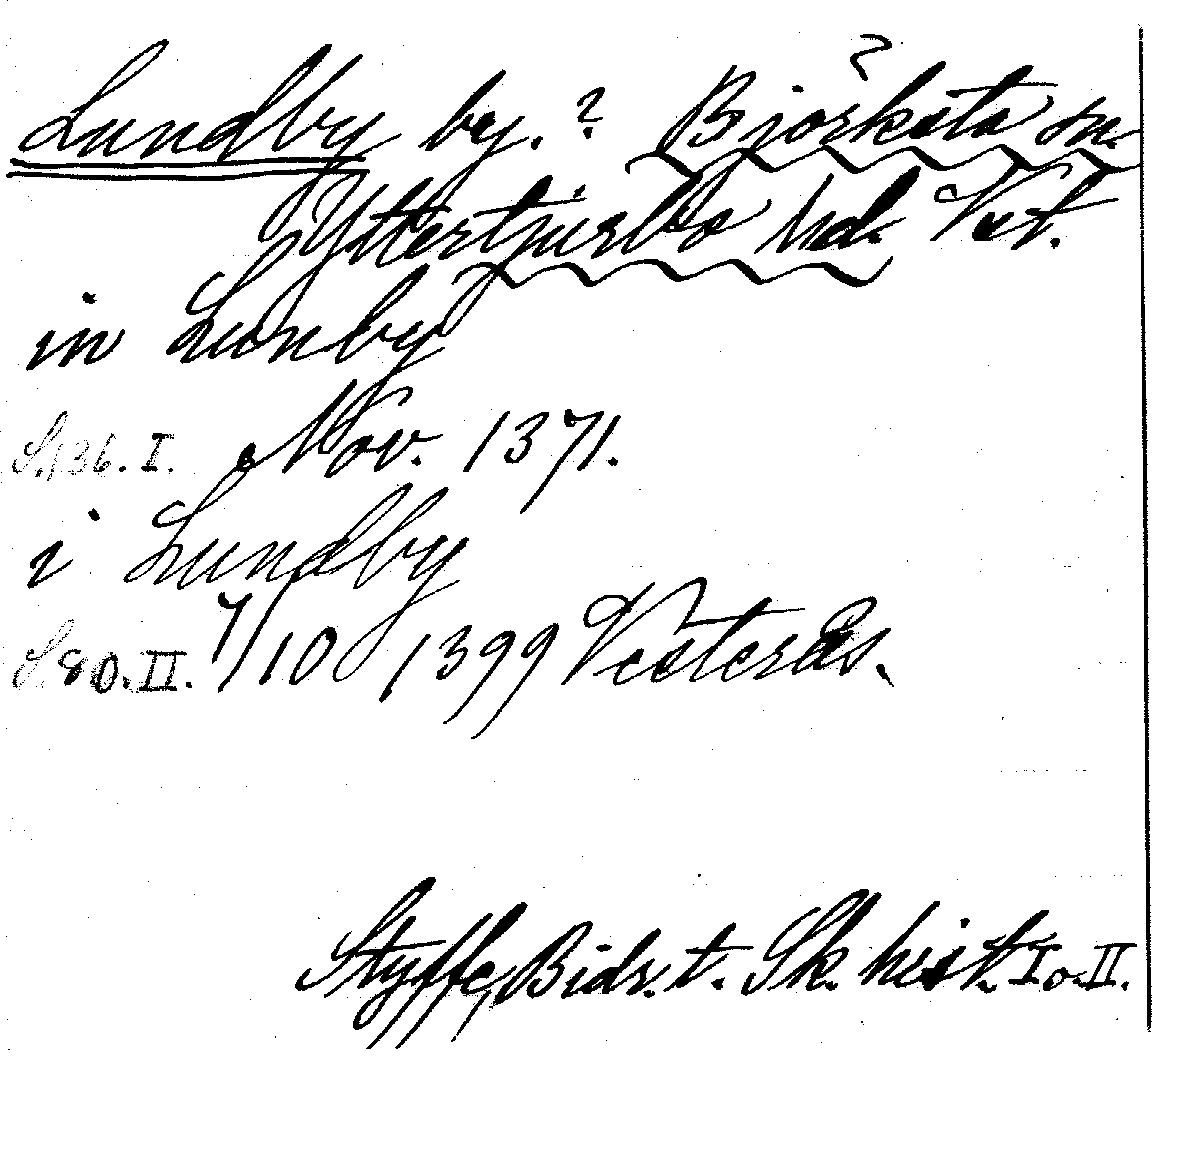 ?
Lundby by. ? Björksta sn.
Yttertjurbo hd. Vst.
in Lunby
S. 136. I. Nov. 1371.
i Lundby
S. 80. II. 7/10 1399 Vesterås.
Styffe, Bidr. t. Sk. hist. I o. II.